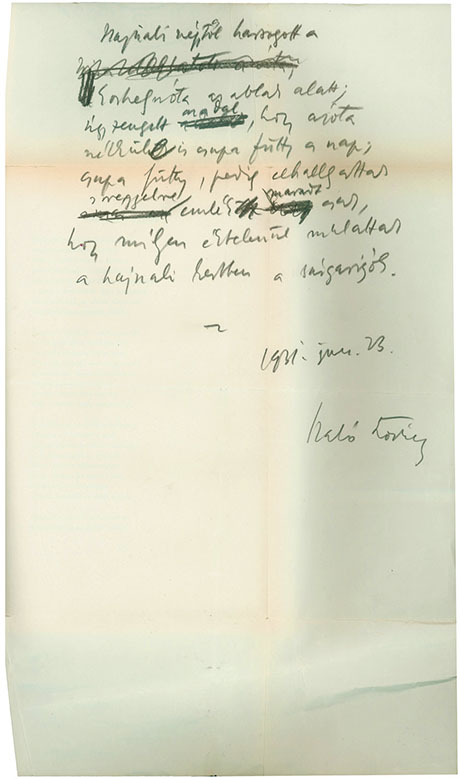 Hajnali néptől harsogott a
Eoshegnóta az ablak alatt;
úgy zengett a dal, hogy azóta
nélkülük is csupa fütty a nap;
csupa fütty, pedig elhallgattak
s reggelre emlék maradt csak,
hogy milyen értelenül mulattak
a hajnali kertben a sárgarigók.
1931. jun. 23.
Szabó Lőrinc